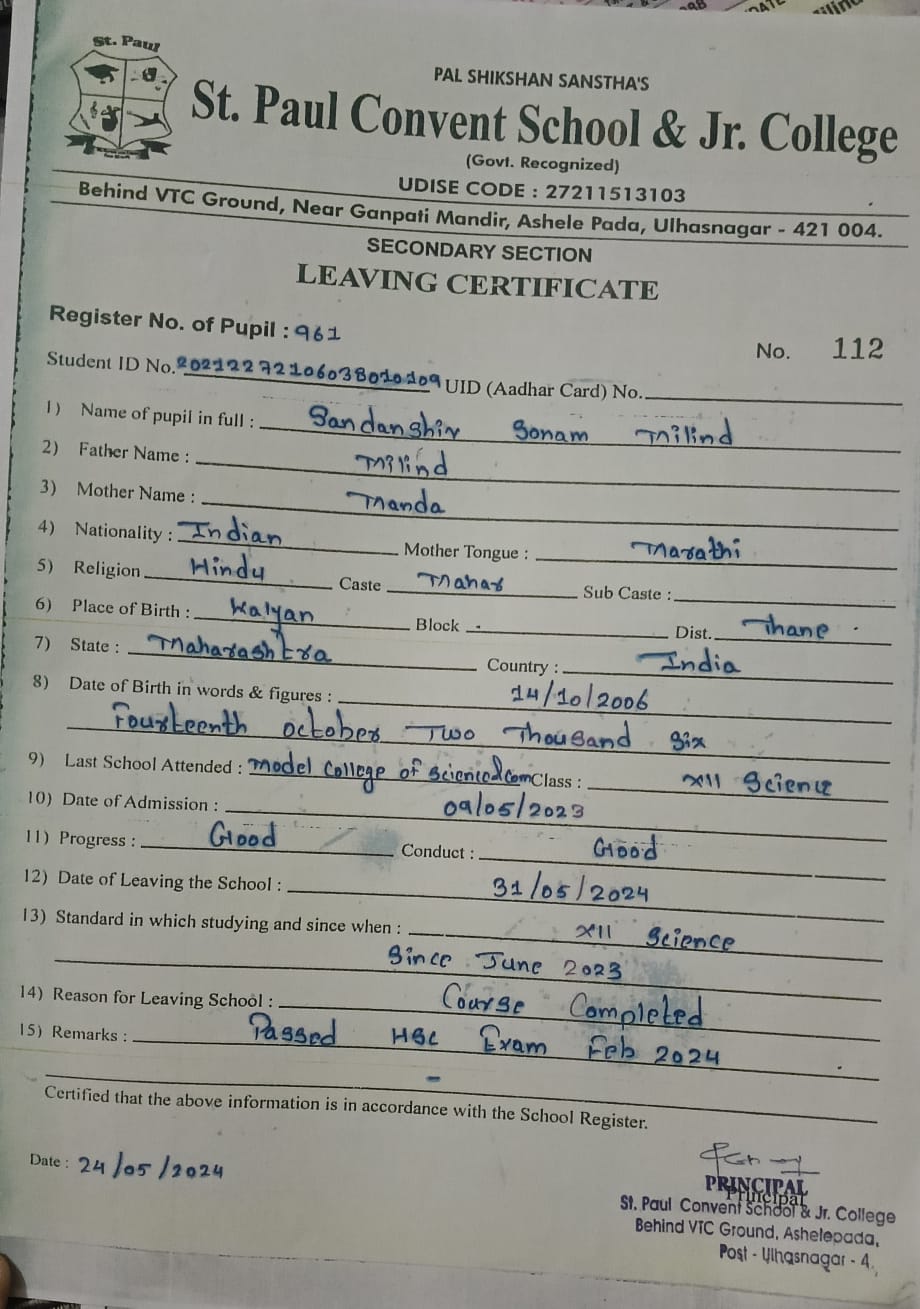 St. Paul
PAL SHIKSHAN SANSTHA'S
St. Paul Convent School & Jr. College
(Govt. Recognized)
UDISE CODE : 27211513103
Behind VTC Ground, Near Ganpati Mandir, Ashele Pada, Ulhasnagar - 421 004.
SECONDARY SECTION
LEAVING CERTIFICATE
Register No. of Pupil : 961
No. 112
Student ID No. 20212272106038010109 UID (Aadhar Card) No.
1) Name of pupil in full : Sandanshiv Sonam Milind
2) Father Name : Milind
3) Mother Name : Manda
4) Nationality : Indian Mother Tongue : Marathi
5) Religion Hindu Caste Mahar Sub Caste :
6) Place of Birth : Kalyan Block - Dist. Thane
7) State : Maharashtra Country : India
8) Date of Birth in words & figures : 14/10/2006
Fourteenth October Two Thousand Six
9) Last School Attended : Model College of Science & Com Class : XII Science
10) Date of Admission : 09/05/2023
11) Progress : Good Conduct : Good
12) Date of Leaving the School : 31/05/2024
13) Standard in which studying and since when : XII Science
Since June 2023
14) Reason for Leaving School : Course Completed
15) Remarks : Passed HSC Exam Feb 2024
-
Certified that the above information is in accordance with the School Register.
Date : 24/05/2024
PRINCIPAL
Principal
St. Paul Convent School & Jr. College
Behind VTC Ground, Ashelepada,
Post - Ulhasnagar - 4.